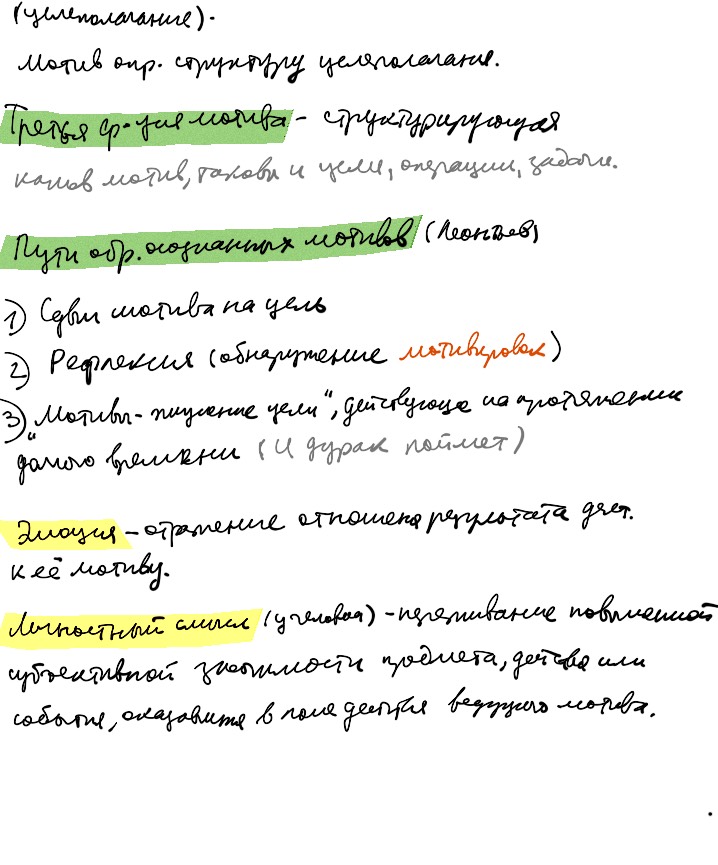 (целеполагание).
Мотив опр. структуру целеполагания.
Третья ф-ция мотива - структурирующая
каков мотив, таковы и цели, операции, задачи.
Пути обр. осознанных мотивов (Леонтьев)
1) Сдвиг мотива на цель
2) Рефлексия (обнаружение мотивировок)
3) "Мотивы- цели", действующие на протяжении
долгого времени (И дурак поймет)
Эмоция - отражение отношения результата деят.
к её мотиву.
Личностный смысл (у человека) - переживание повышенной
субъективной значимости предмета, действия или
события, оказавшихся в поле действия ведущего мотива.